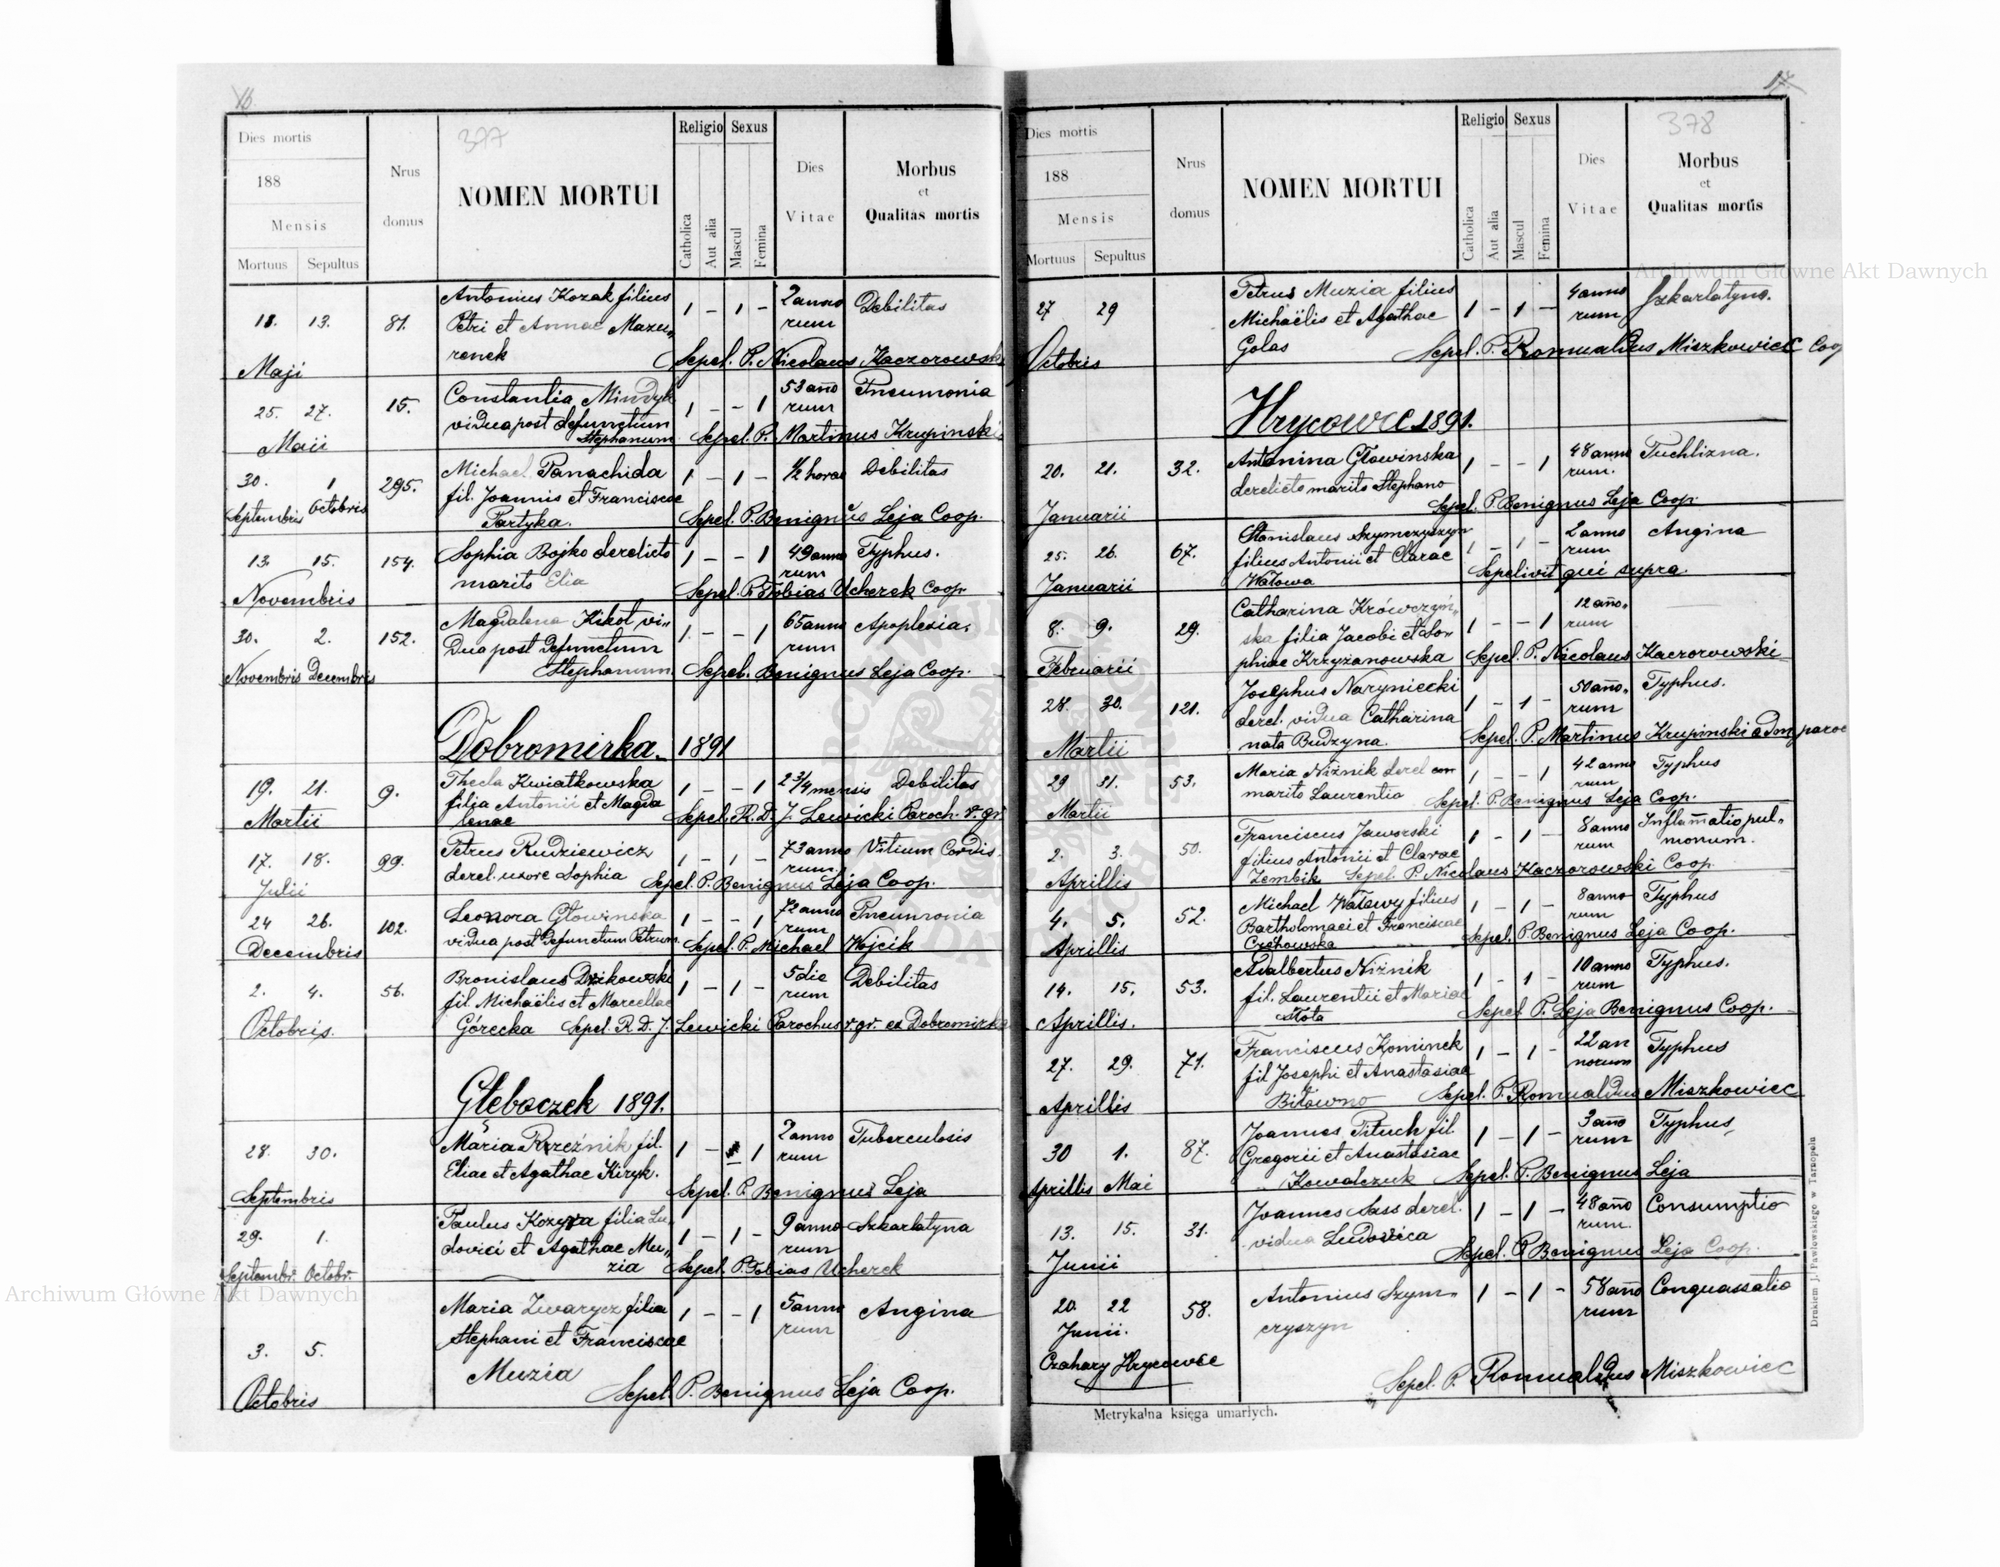 16
Dies mortis
188
Mensis
Mortuus Sepultus
Nrus
domus
377
NOMEN MORTUI
Religio Sexus
Catholica
Aut alia
Mascul
Femina
Dies
Vitae
Morbus
et
Qualitas mortis
Antonius Kozak filius 1 - 1 - 2 anno Debilitas
11. 13. 81. Petri et Annae Mazu„ rum
ronek Sepel. P. Nicolaus Kaczorowski
Maji
Constantia Mindyk 53 año Pneumonia
25. 27. 15. vidua post defunctum 1 - - 1 rum
Stephanum Sepel. P. Martinus Krupinski
Maii
Michael Panachida 1 - 1 - ½ horae Debilitas
30. 1 295. fil. Joannis et Franciscae
Septembris Octobris Partyka. Sepel. P. Benignus Leja Coop.
13 15. 154. Sophia Bojko derelicto 1 - - 1 49 anno Typhus.
marito Elia rum
Novembris Sepel. P. Tobias Ucherek Coop
Magdalena Kikot vi„ 65 anno Apoplexia.
30. 2. 152. dua post defunctum 1. - - 1 rum
Novembris Decembris Stephanum. Sepel. Benignus Leja Coop.
Dobromirka. 1891
19. 21. 9. Thecla Kwiatkowska 1 - - 1 2 3/4 mensis Debilitas
filia Antonii et Magda
Martii lenae Sepel. R. D. J. Lewicki Paroch. r. gr
17. 18. 99. Petrus Rudziewicz 1 - 1 - 73 anno Vitium Cordis.
derel. uxore Sophia rum
Julii Sepel. P. Benignus Leja Coop.
24 26. 102. Leonora Głowinska 1 - - 1 72 anno Pneumonia
vidua post defunctum Petrum rum
Decembris Sepel. P. Michael Wojcik
Bronislaus Dzikowski 5 die Debilitas
2. 4. 56. fil. Michaëlis et Marcellae 1 - 1 - rum
Octobris. Górecka Sepel. R. D. J. Lewicki Parochus r. gr. ex Dobromirka
Głeboczek 1891.
28. 30. Maria Rzeźnik fil. 1 - 1 2 anno Tuberculosis
Eliae et Agathae Kiryk. rum
Septembris Sepel. P. Benignus Leja
29. 1. Paulus Kozyra filia Lu„ 1 - 1 - 9 anno Szkarlatyna
dovici et Agathae Mu„ rum
Septembr. Octobr. zia Sepel. P. Tobias Ucherek
Maria Zwarycz filia 1 - - 1 5 anno Angina
Stephani et Franciscae rum
3. 5. Muzia
Octobris Sepel. P. Benignus Leja Coop.
17
Dies mortis
188
Mensis
Mortuus Sepultus
Nrus
domus
378
NOMEN MORTUI
Religio Sexus
Catholica
Aut alia
Mascul
Femina
Dies
Vitae
Morbus
et
Qualitas mortis
Petrus Muzia filius 4 anno Szkarlatyna.
27 29 Michaëlis et Agathae 1 - 1 - rum
Octobris Golas Sepel. P. Romualdus Miszkowiec Coop
Hrycowce 1891.
20. 21. 32. Antonina Głowinska 1 - - 1 48 anno Tuchlizna.
derelicto marito Stephano rum.
Januarii Sepel. P. Benignus Leja Coop.
25. 26. 67. Stanislaus Szymczyszyn 1 - 1 - 2 anno Angina
filius Antonii et Clarae rum
Januarii Watowa Sepelivit qui supra.
Catharina Krówczyń„ 12 año„
8. 9. 29. ska filia Jacobi et So„ 1 - - 1 rum
Februarii phiae Krzyżanowska Sepel. P. Nicolaus Kaczorowski
Josephus Naryniecki 50 año„ Typhus.
28. 30. 121. derel. vidua Catharina 1 - 1 - rum
Martii nata Budzyna. Sepel. P. Martinus Krupinski adm. paroc
29 31. 53. Maria Niżnik derel 1 - - 1 42 anno Typhus
marito Laurentio rum
Martii Sepel. P. Benignus Leja Coop.
2. 3. 50. Franciscus Jaworski 1 - 1 - 8 anno Inflamatio pul„
filius Antonii et Clarae rum monum.
Aprillis Zembik Sepel. P. Nicolaus Kaczorowski Coop.
4. 5. 52. Michael Watowy filius 1 - 1 - 8 anno Typhus
Bartholomaei et Franciscae rum
Aprillis Czehowska Sepel. P. Benignus Leja Coop.
14. 15. 53. Adalbertus Niżnik 1 - 1 - 10 anno Typhus.
fil. Laurentii et Mariae rum
Aprillis. Stota Sepel. P. Leja Benignus Coop.
27. 29. 71. Franciscus Kominek 1 - 1 - 22 an Typhus
fil Josephi et Anastasiae norum
Aprillis Biłowno Sepel. P. Romualdus Miszkowiec
30 1. 87. Joannes Pituch fil. 1 - 1 - 3 año Typhus
Gregorii et Anastasiae rum
Aprillis Mai Kowalczuk Sepel. P. Benignus Leja
13. 15. 31. Joannes Sass derel. 1 - 1 - 48 año Consumptio
vidua Ludovica rum.
Junii Sepel. P. Benignus Leja Coop.
20. 22 58. Antonius Szym„ 1 - 1 - 58 año Conquassatio
Junii. cryszyn rum
Czahary Hrycowce
Sepel. P. Romualdus Miszkowiec
Metrykalna księga umarłych.
Drukiem J. Pawłowskiego w Tarnopolu
Archiwum Główne Akt Dawnych
Archiwum Główne Akt Dawnych